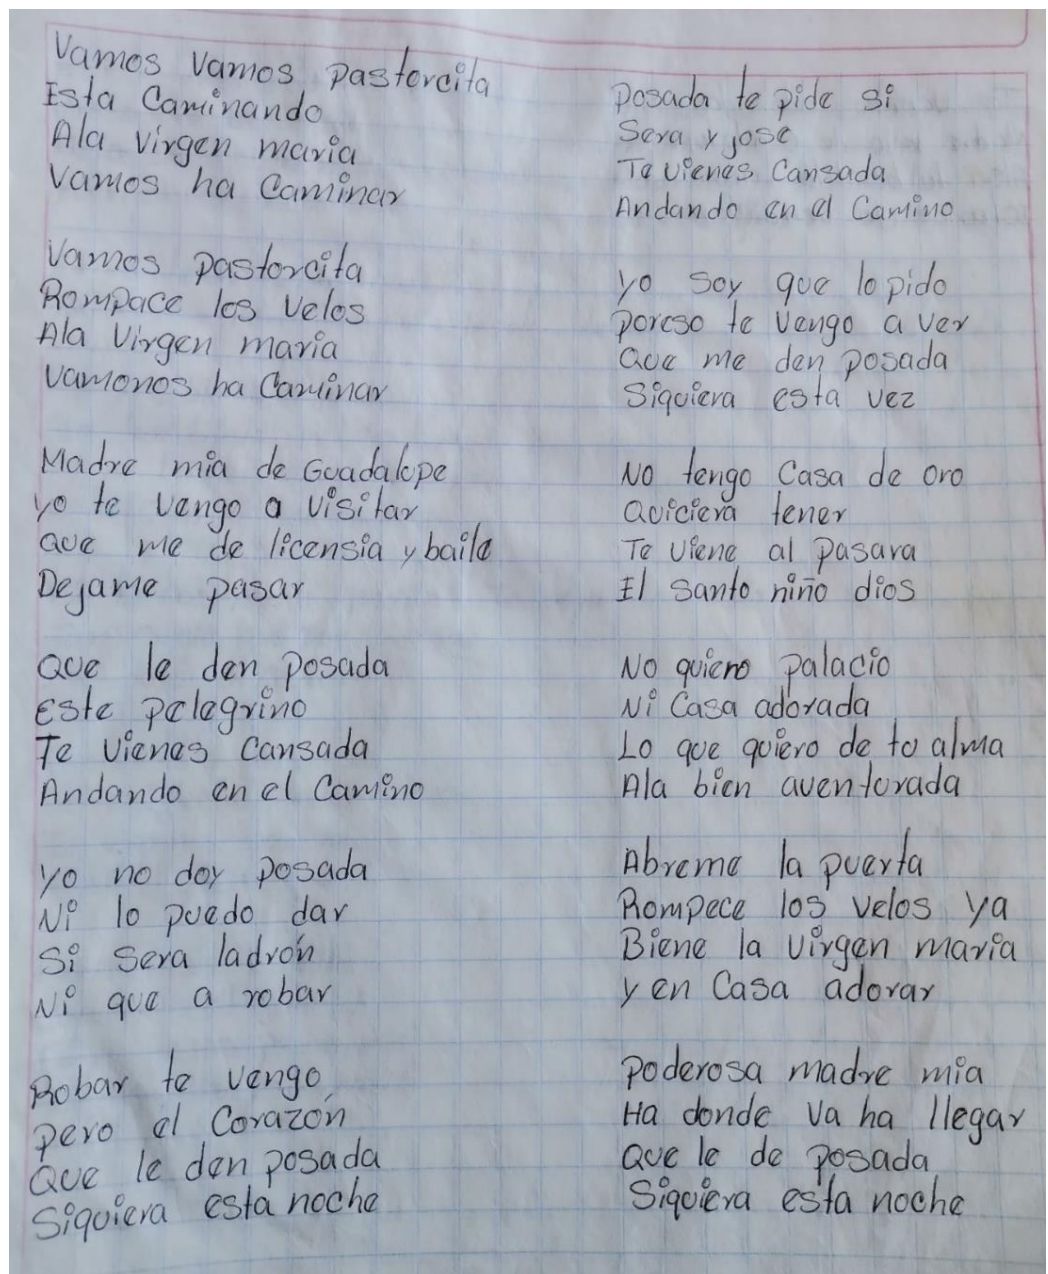 Vamos Vamos pastorcita
Esta Caminando
Ala Virgen maria
Vamos ha Caminar
Vamos pastorcita
Rompace los Velos
Ala Virgen maria
Vamonos ha Caminar
Madre mia de Guadalupe
yo te Vengo a Visitar
Que me de licensia y baile
Dejame pasar
Que le den posada
Este pelegrino
Te Vienes Cansada
Andando en el Camino
yo no doy posada
Ni lo puedo dar
Si Sera ladrón
Ni que a robar
Robar te vengo
pero el Corazón
Que le den posada
Siquiera esta noche
posada te pide si
Sera y jose
Te Vienes Cansada
Andando en el Camino
yo soy que lo pido
poreso te Vengo a ver
Que me den posada
Siquiera esta vez
No tengo Casa de oro
Quiciera tener
Te Viene al pasara
El Santo niño dios
No quiero palacio
Ni Casa adorada
Lo que quiero de tu alma
Ala bien aventurada
Abreme la puerta
Rompece los velos ya
Biene la Virgen maria
y en Casa adorar
poderosa madre mia
Ha donde Va ha llegar
Que le de posada
Siquiera esta noche